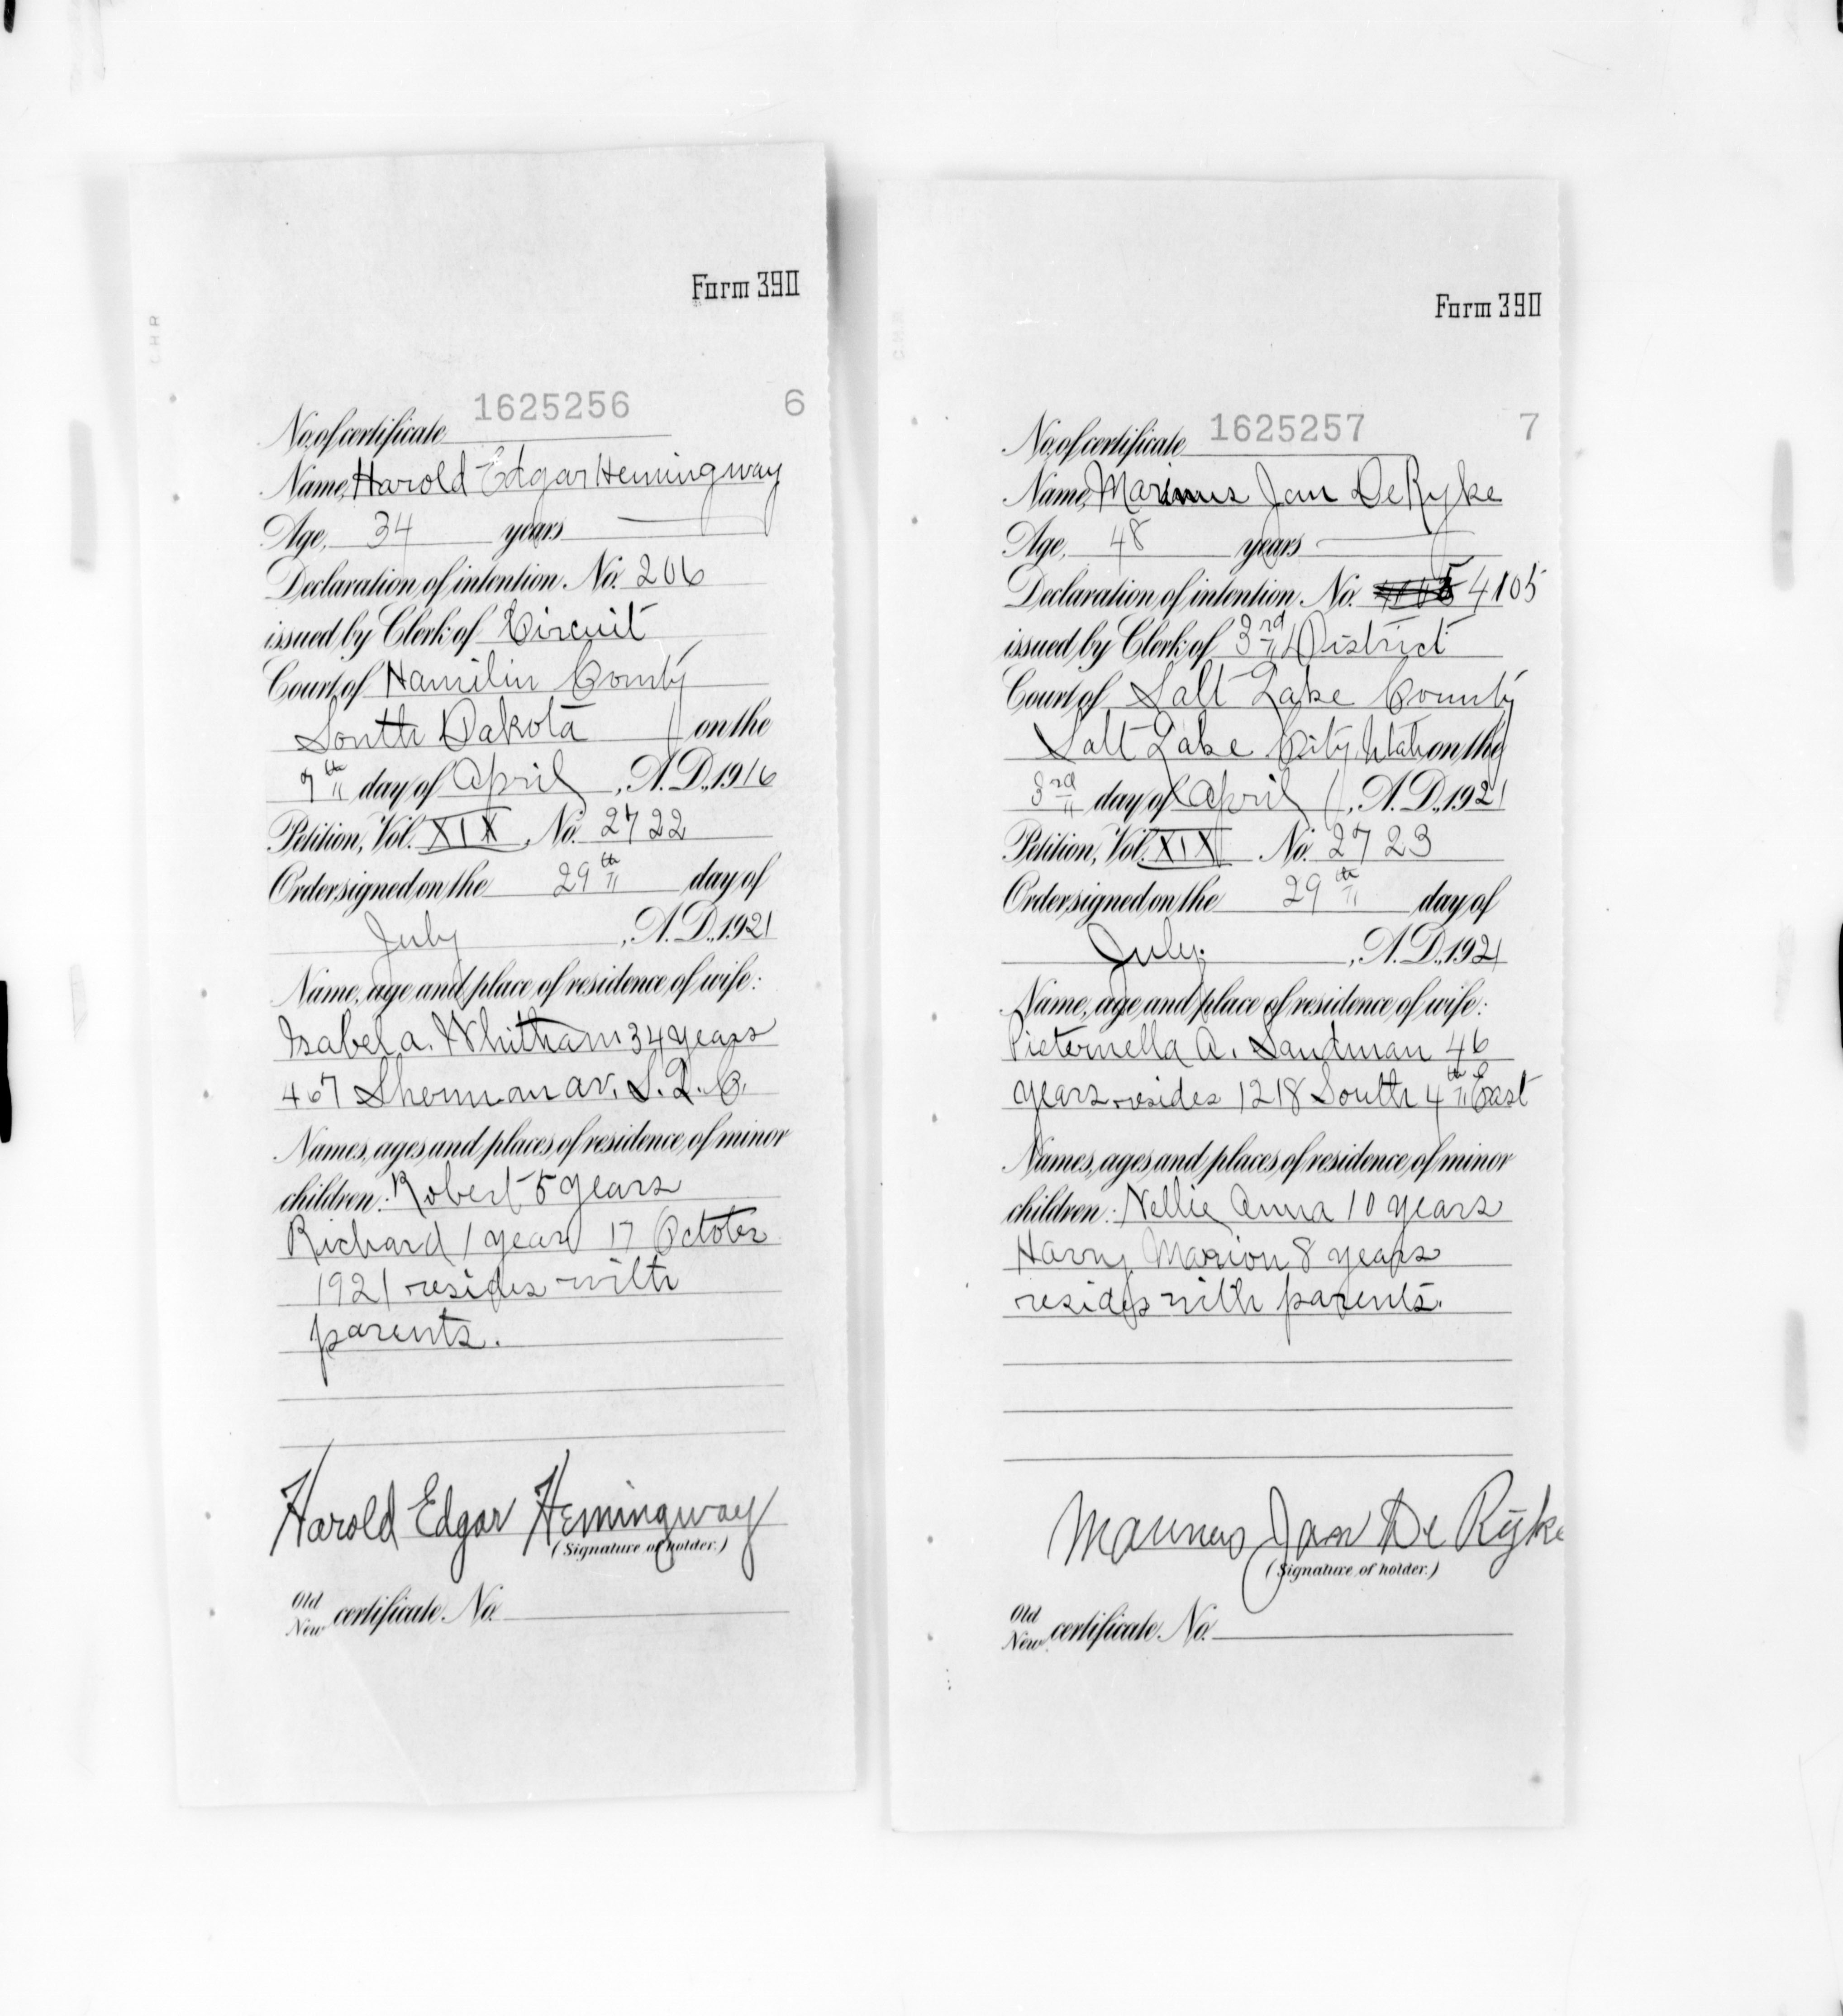 Form 390
1625256 6
No. of certificate
Name, Harold Edgar Hemingway
Age, 34 years
Declaration of intention No. 206
issued by Clerk of Circuit
Court of Hamilin County
South Dakota on the
7th day of April, A.D. 1916
Petition, Vol. XIX, No. 2722
Order signed on the 29th day of
July, A.D. 1921
Name, age and place of residence of wife:
Isabel A. Whitham 34 years
467 Sherman av. S.L.C.
Names, ages and places of residence of minor
children: Robert 5 years
Richard 1 year 17 October
1921 resides with
parents.
Harold Edgar Hemingway
(Signature of holder.)
Old
New certificate No.
Form 390
1625257 7
No. of certificate
Name, Marinus Jan De Ryke
Age, 48 years
Declaration of intention No. 4105
issued by Clerk of 3rd District
Court of Salt Lake County
Salt Lake City, Utah on the
3rd day of April, A.D. 1921
Petition, Vol. XIX No. 2723
Order signed on the 29th day of
July, A.D. 1921
Name, age and place of residence of wife:
Pieternella A. Sandman 46
years resides 1218 South 4th East
Names, ages and places of residence of minor
children: Nellie Anna 10 years
Harry Marion 8 years
resides with parents.
Marinus Jan De Rijke
(Signature of holder.)
Old
New certificate No.